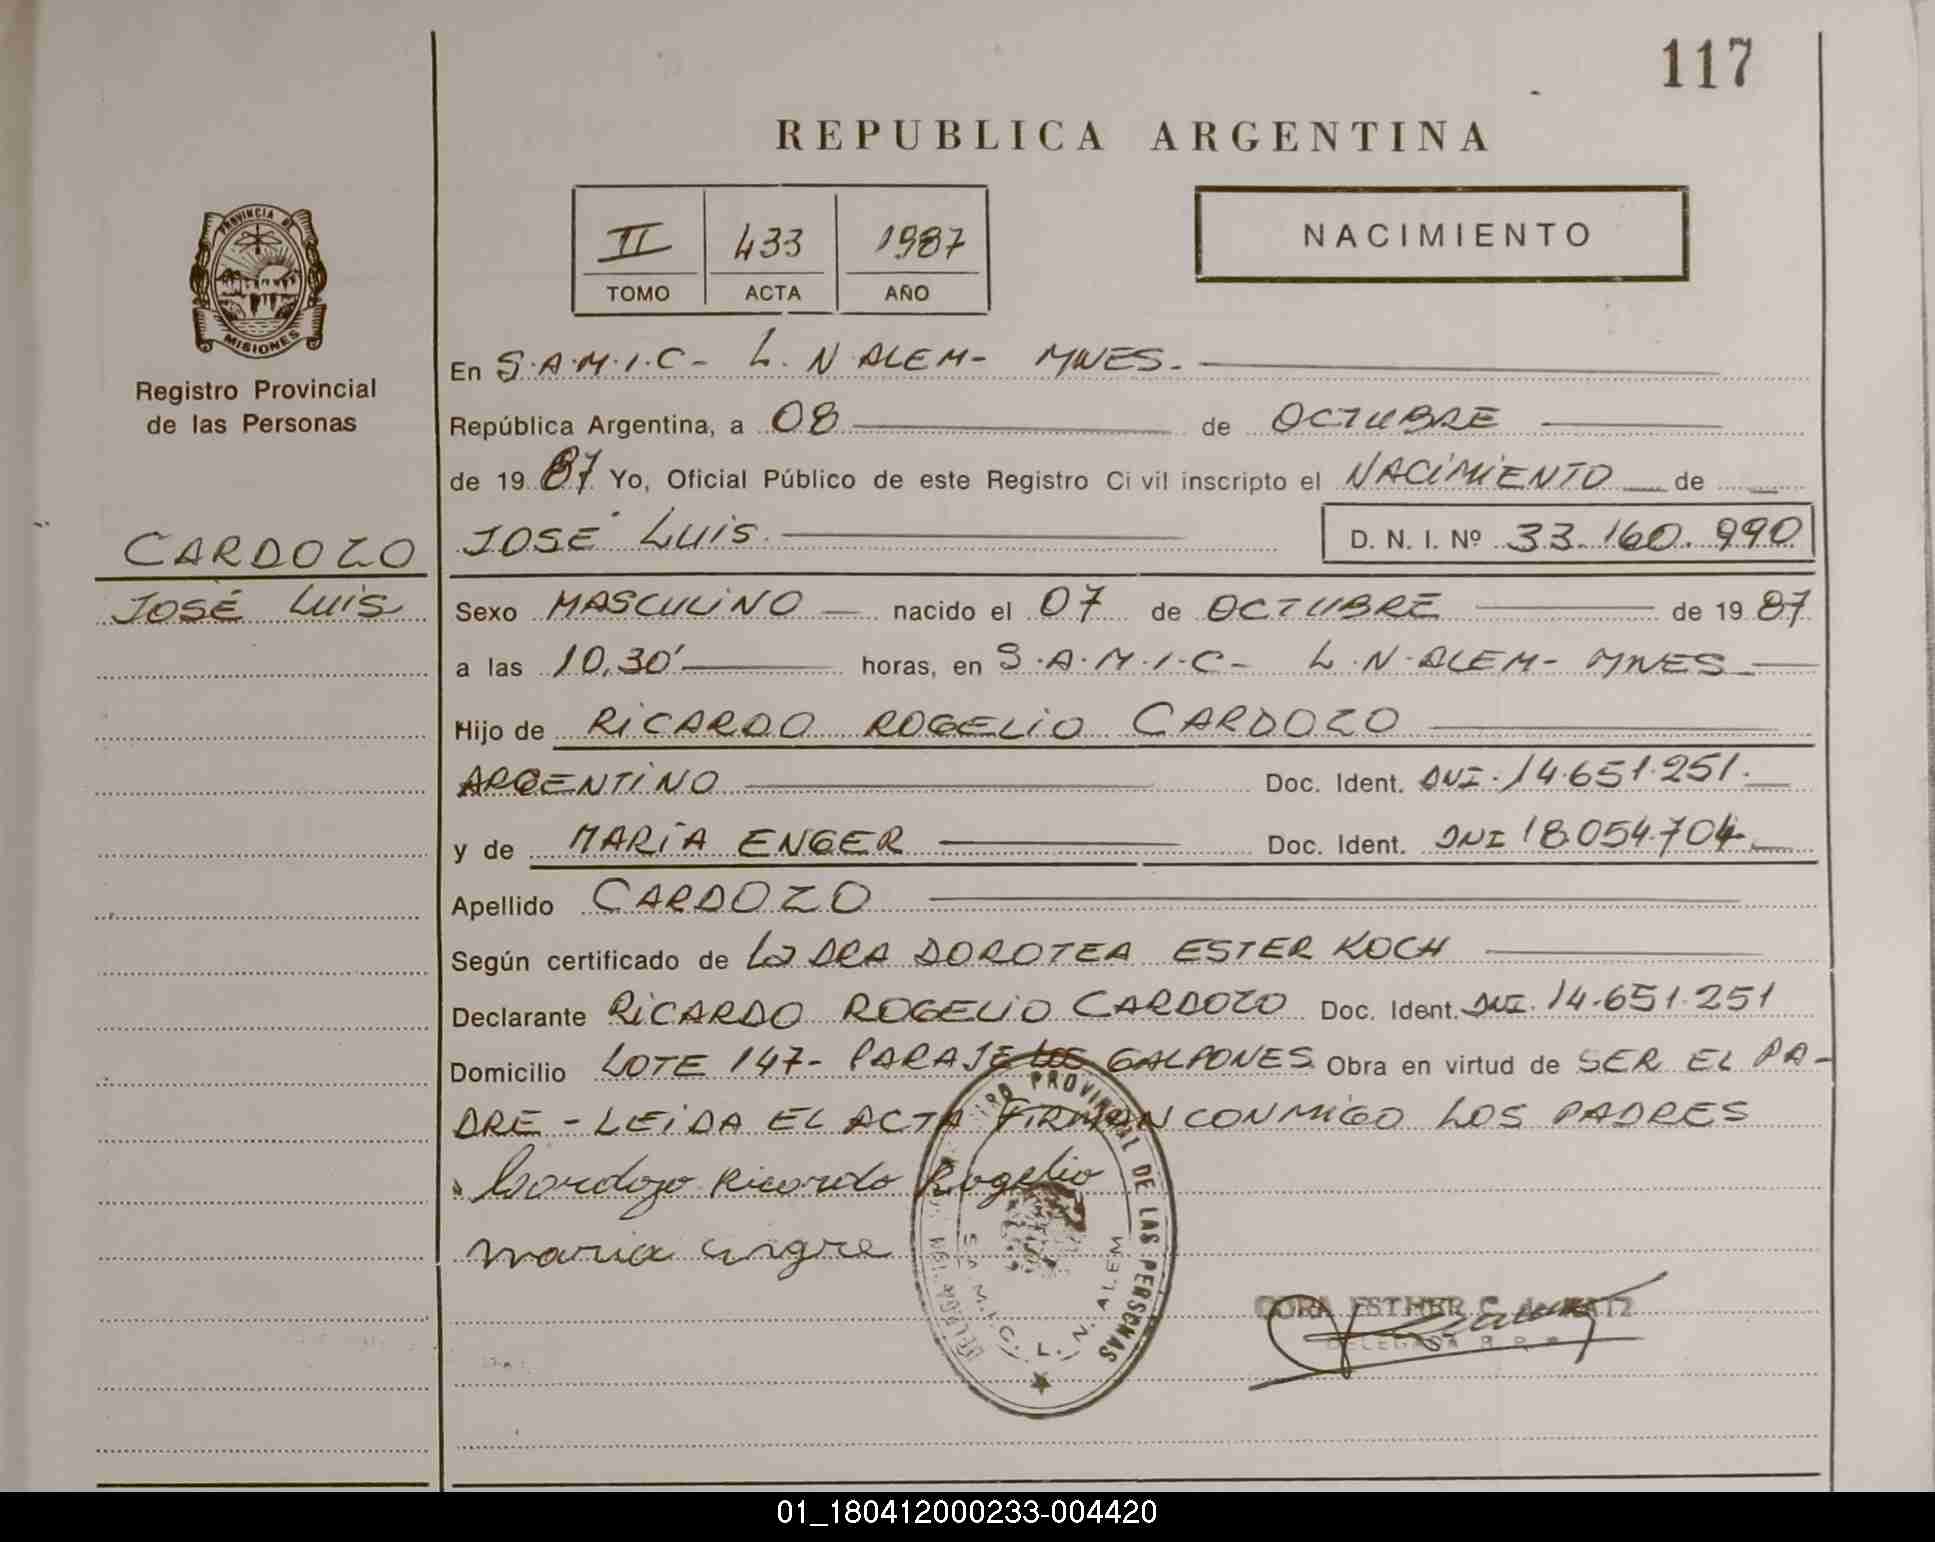 117
REPUBLICA ARGENTINA
PROVINCIA DE
MISIONES
Registro Provincial
de las Personas
II 433 1987
TOMO ACTA AÑO
NACIMIENTO
En S.A.M.I.C- L. N ALEM- MNES.
República Argentina, a 08 de OCTUBRE
de 19 87 Yo, Oficial Público de este Registro Civil inscripto el NACIMIENTO de
CARDOZO
JOSÉ LUIS
JOSÉ LUIS. D. N. I. Nº 33.160.990
Sexo MASCULINO nacido el 07 de OCTUBRE de 19 87
a las 10,30' horas, en S.A.M.I.C- L.N.ALEM- MNES
Hijo de RICARDO ROGELIO CARDOZO
ARGENTINO Doc. Ident. DNI. 14.651.251.
y de MARÍA ENGER Doc. Ident. DNI 18.054.704
Apellido CARDOZO
Según certificado de La DRA DOROTEA ESTER KOCH
Declarante RICARDO ROGELIO CARDOZO Doc. Ident. DNI. 14.651.251
Domicilio LOTE 147- PARAJE LOS GALPONES Obra en virtud de SER EL PA-
DRE - LEIDA EL ACTA FIRMAN CONMIGO LOS PADRES
Cardozo Ricardo Rogelio
maria
PROVINCIAL DE LAS PERSONAS
S.A.M.I.C. L. N. ALEM
CORA ESTHER C. de KATZ
DELEGADA
01_180412000233-004420